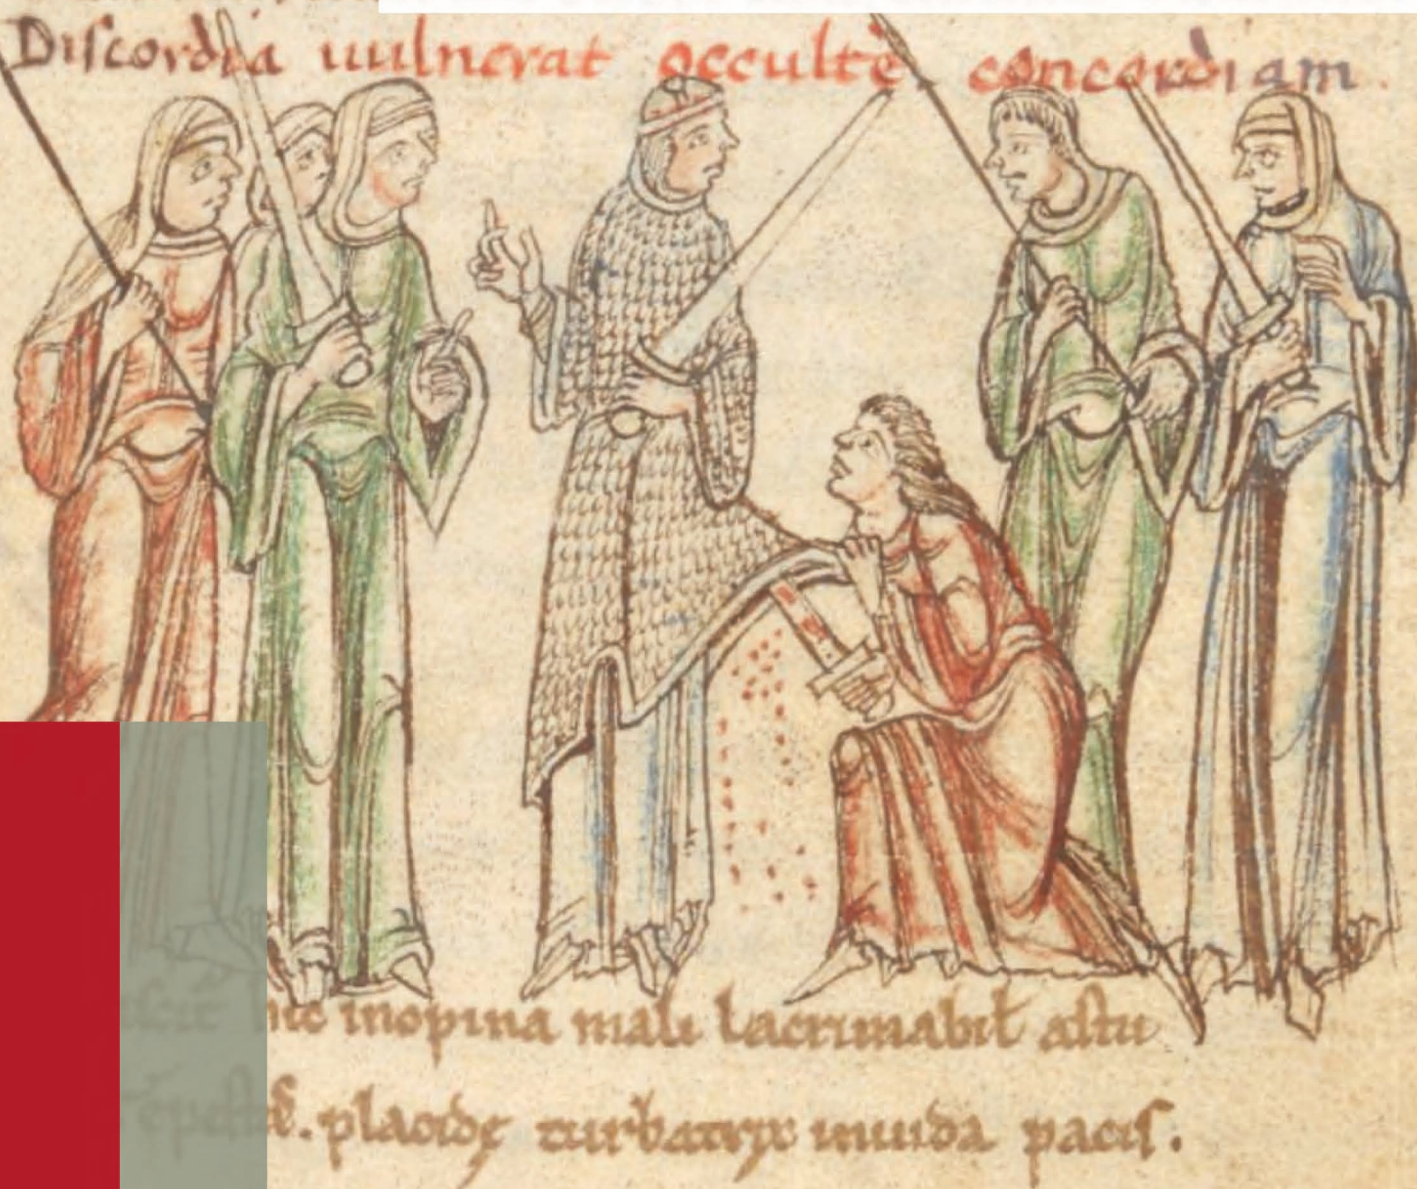 Discordia uulnerat occultè concordiam.
hic inopina mali lacrimabil astu
placidę turbatrix inuida pacis.